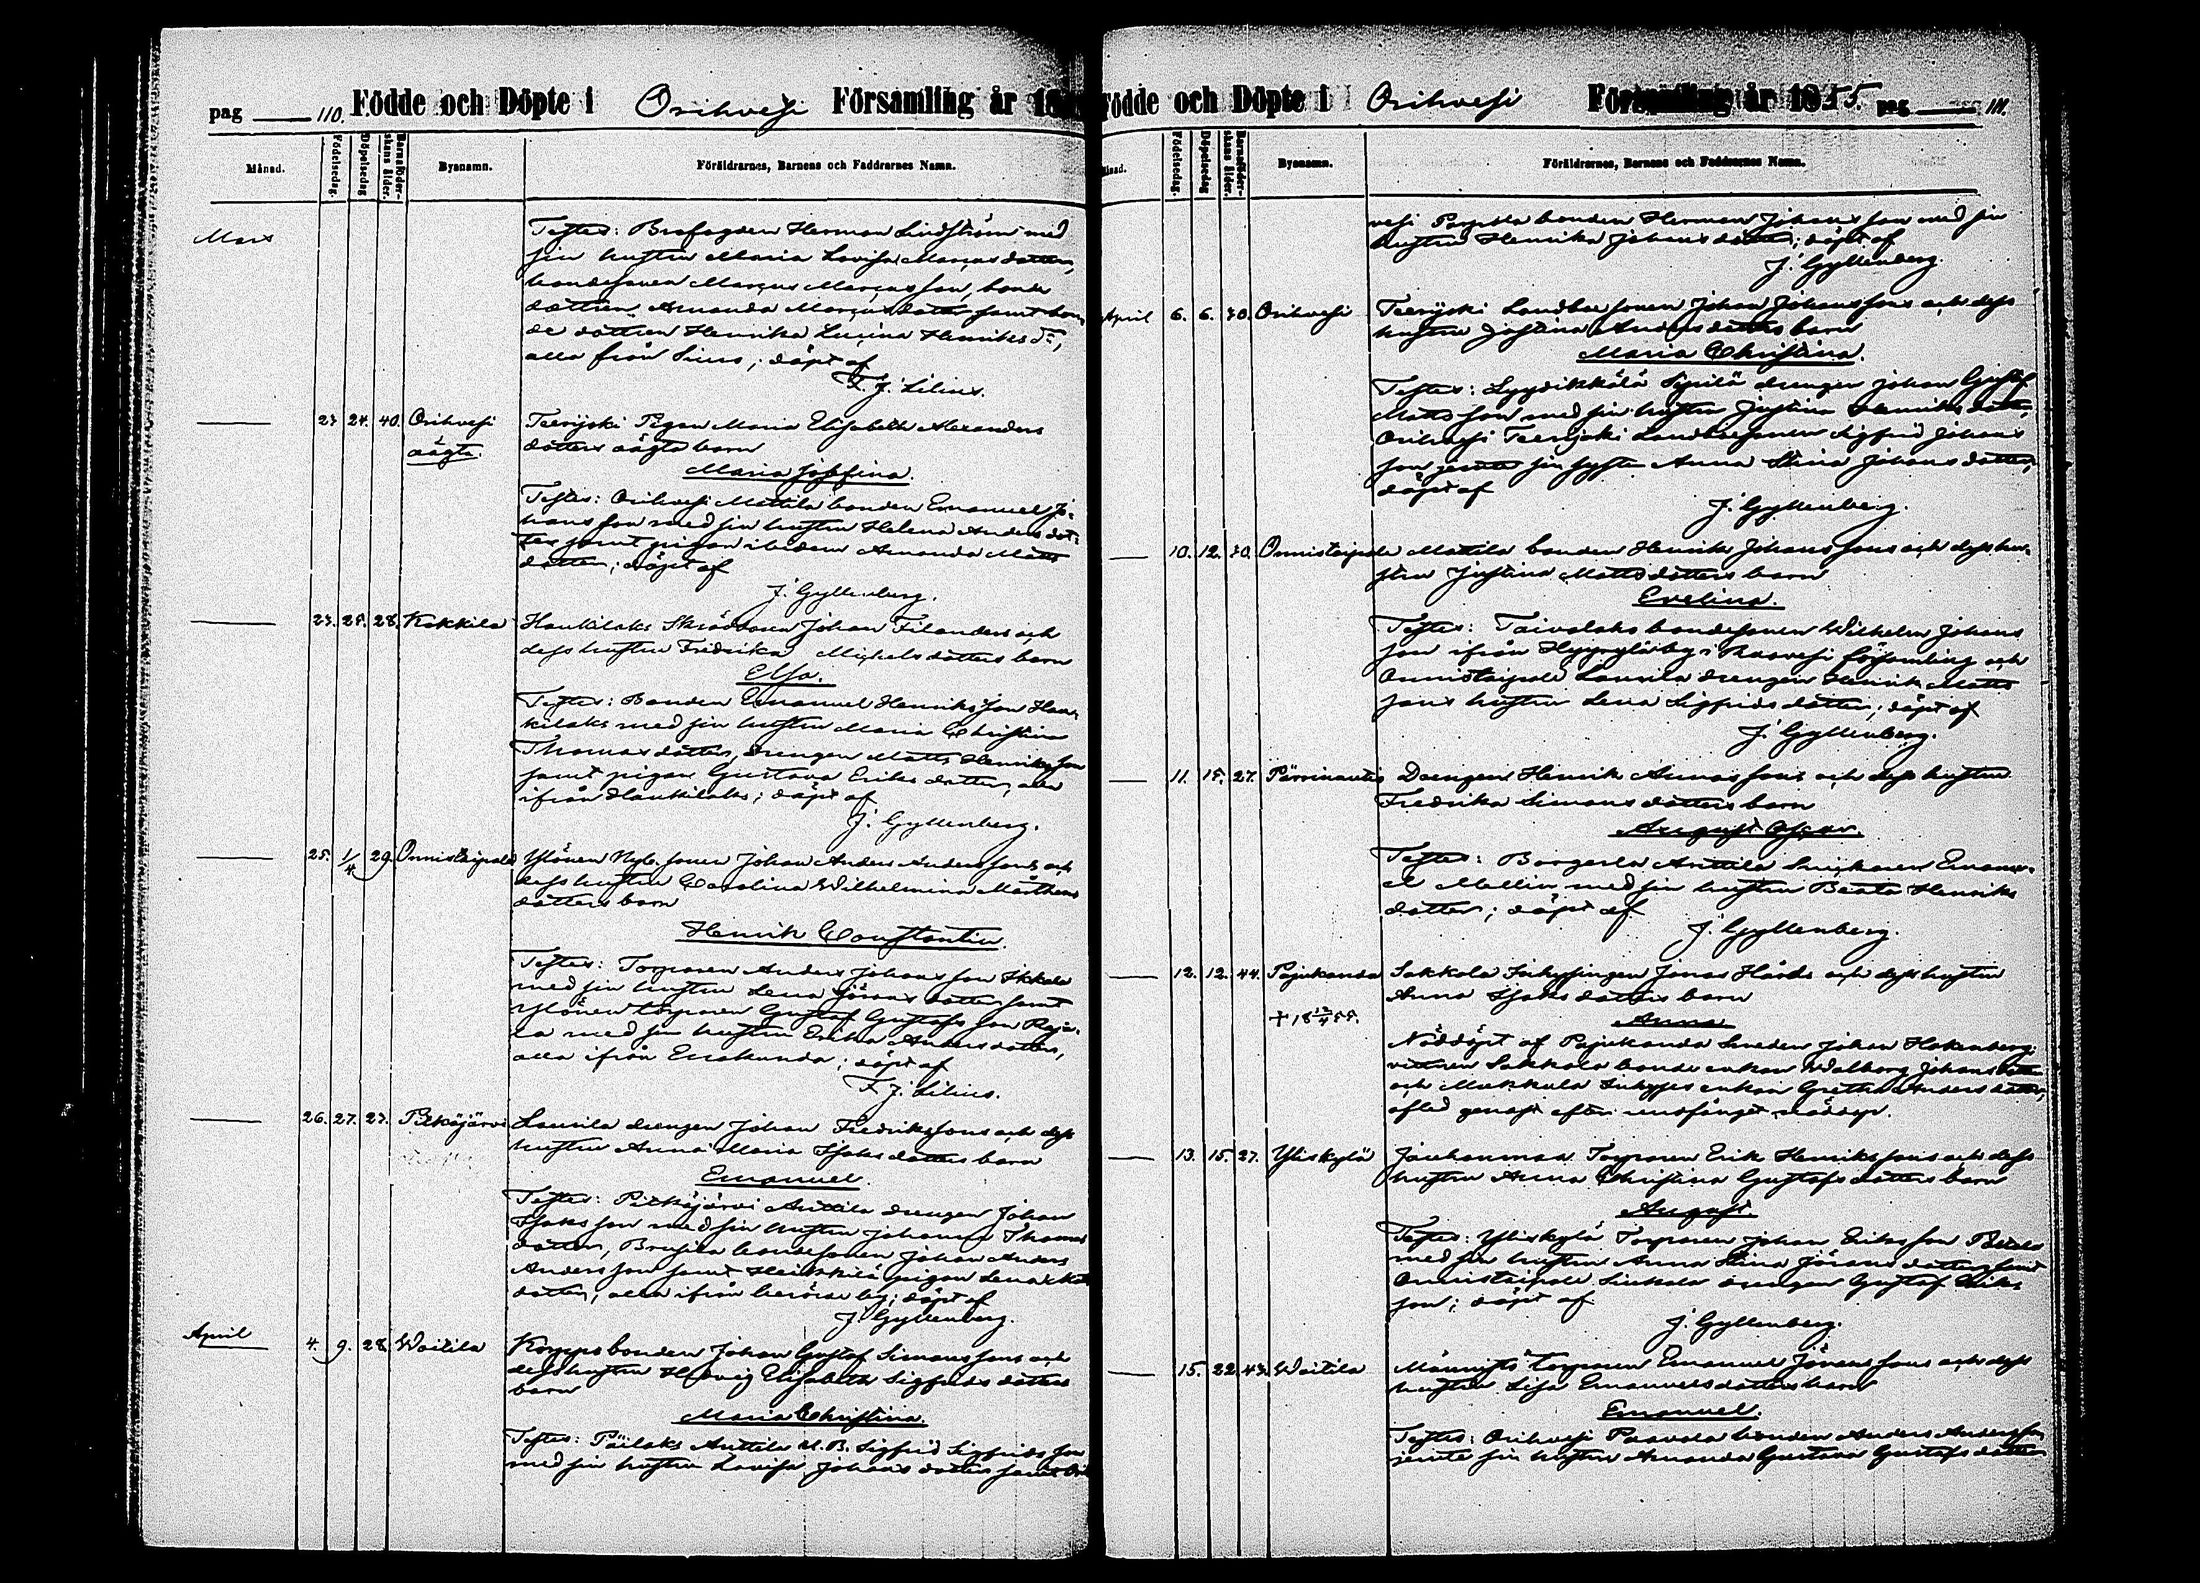 pag 110. Födde och Döpte i Orihvesi Församling år 18
Månad. Födelsedag. Döpelsedag Barnaföder-skans ålder. Bysnamn. Föräldrarnes, Barnens och Faddrarnes Namn.
Mars
Testes: Brofogden Herman Lindström med
sin hustru Maria Lovisa Marcus dotter,
bondesonen Marcus Marcusson, bonde
dottren Amanda Marcus dotter samt bon
de dottren Henrika Lucina Henriks dr,
alla från Siurs; döpt af
F. J. Lilius.
23 24. 40. Orihvesi Teerijoki Pigan Maria Elisabeth Alexanders
oägta. dotters oägta barn
Maria Josefina.
Testes: Orihvesi Mattila bonden Emanuel Jo-
hansson med sin hustru Helena Anders dot-
ter samt pigan ibidem Amanda Matts
dotter; döpt af
J. Gyllenberg.
23. 25. 28. Kokkila Haukilaks Skräddaren Johan Filanders och
dess hustru Fredrika Michels dotters barn
Elsa.
Testes: Bonden Emanuel Henriksson Hau-
kilaks med sin hustru Maria Christina
Thomas dotter, drengen Matts Henriksson
samt pigan Gustava Eriks dotter, alla
ifrån Haukilaks; döpt af
J. Gyllenberg.
25. 1/4 29. Onnistaipale Ylönen Nyb. sonen Johan Anders Anderssons och
dess hustru Carolina Wilhelmina Mårthens
dotters barn
Henrik Constantin.
Testes: Torparen Anders Johansson Ikkala
med sin hustru Lena Görans dotter samt
Ylönen torparen Gustaf Gustafsson
med sin hustru Erika Anders dotter,
alla ifrån Enokunda; döpt af
F. J. Lilius.
26. 27. 27. Pitkäjärvi Laurila drengen Johan Fredrikssons och dess
hustru Anna Maria Isaks dotters barn
Emanuel.
Testes: Pitkäjärvi Anttila drengen Johan
Isaksson med sin hustru Johanna Thomas
dotter, Brusila bondesonen Johan Anders
Andersson samt Heikkilä pigan Lena
dotter, alla ifrån berörde by; döpt af
J. Gyllenberg.
April 4. 9. 28. Woitila Korppi bonden Johan Gustaf Simonssons och
dess hustru Hedvig Elisabeth Sigfrids dotters
barn
Maria Christina.
Testes: Päilaks Anttila U. B. Sigfrid Sigfridsson
med sin hustru Lovisa Johans dotter samt Ori
Födde och Döpte i Orihvesi Församling år 1855. pag 111.
Månad. Födelsedag. Döpelsedag Barnaföder-skans ålder. Bysnamn. Föräldrarnes, Barnens och Faddrarnes Namn.
vesi Pappila bonden Herman Johansson med sin
hustru Henrika Johans dotter; döpt af
J. Gyllenberg.
April 6. 6. 30. Orihvesi Teerijoki Landbosonen Johan Johanssons och dess
hustru Justina Anders dotters barn
Maria Christina.
Testes: Lyydikkälä Sipilä drengen Johan Gustaf
Mattsson med sin hustru Justina Henriks dotter,
Orihvesi Teerijoki Landbosonen Sigfrid Johans
son jemte sin syster Anna Stina Johans dotter,
döpt af
J. Gyllenberg.
10. 12. 30. Onnistaipale Mattila bonden Henrik Johanssons och dess hu-
stru Justina Matts dotters barn
Evelina.
Testes: Taivalaho bondesonen Wilhelm Johans
son ifrån Hyyrylä by i Kuorevesi församling och
Onnistaipale Laurila drengen Henrik Matts
sons hustru Lena Sigfrids dotter; döpt af
J. Gyllenberg.
11. 15. 27. Pärrinautio Drengen Henrik Annassons och dess hustru
Fredrika Simons dotters barn
August Oscar.
Testes: Borgarla Anttila Snickaren Emanu-
el Mellin med sin hustru Beata Henriks
dotter; döpt af
J. Gyllenberg.
12. 12. 44. Pajukanda Sakkola Inhysingen Jonas Hårds och dess hustru
Anna Isaks dotters barn
+ 18 12/4 55. Anna
Nöddöpt af Pajukanda Smeden Johan Hokenberg
vittnen Sakkola bonde enkan Walborg Johans dotter
och Mukkula Inhyses enkan Gretha Anders dotter,
afled genast efter undfånget nöddop.
13. 15. 27. Yliskylä Jouhonmaa Torparen Erik Henrikssons och dess
hustru Anna Christina Gustafs dotters barn
August.
Testes: Yliskylä Torparen Johan Eriksson
med sin hustru Anna Stina Görans dotter samt
Onnistaipale Sinkola drengen Gustaf Eriks
son; döpt af
J. Gyllenberg.
15. 22. 43. Woitila Männistö Torparen Emanuel Göranssons och dess
hustru Lisa Emanuels dotters barn
Emanuel.
Testes: Orihvesi Paavola bonden Anders Andersson
jemte sin hustru Amanda Gustava Gustafs dotter